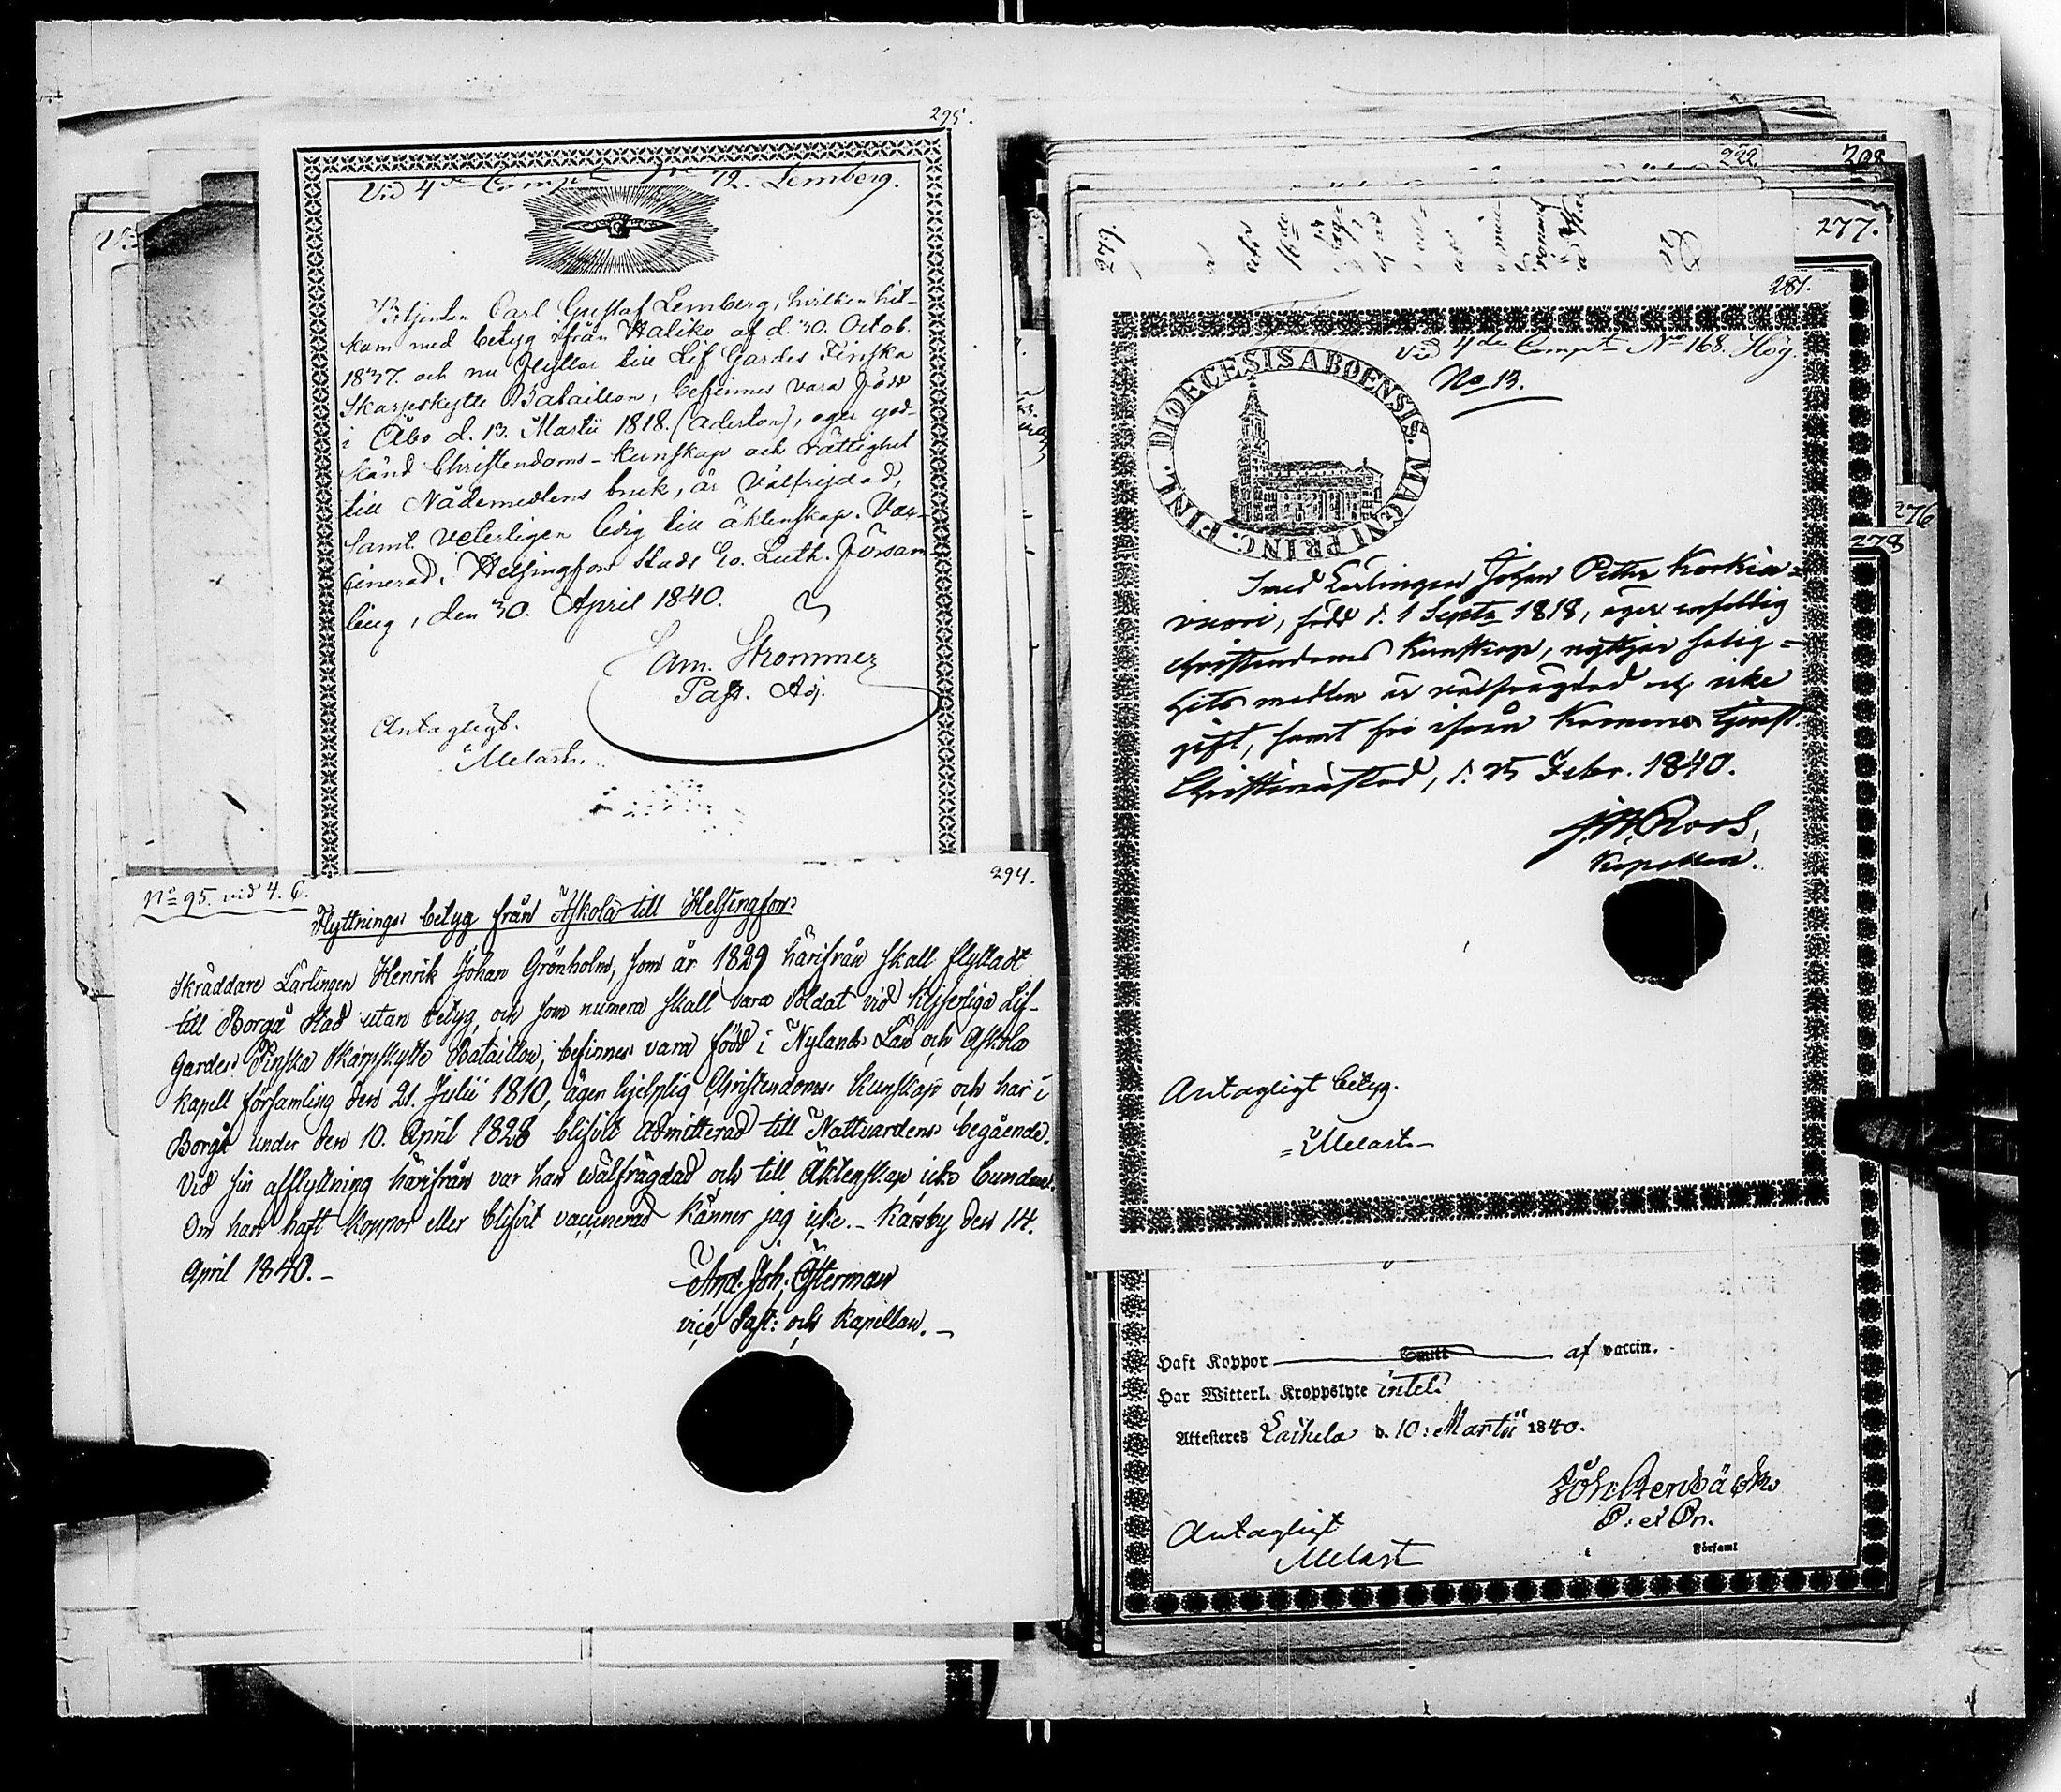 295.
Vid 4de Compt No 72. Lemberg.
Betjenten Carl Gustaf Lemberg, hvilken hit-
kom med betyg ifrån Haliko af d. 30. Octob.
1837. och nu flyttar till Lif Gardes Finska
Skarpskytte Bataillon, befinnes vara född
i Åbo d. 13. Martii 1818. (aderton), eger god-
känd Christendoms-kunskap och rättighet
till Nådemedlens bruk, är välfrejdad,
samt veterligen ledig till äktenskap. Vac-
cinerad. Helsingfors Stads Ev. Luth. Försam-
ling, den 30. April 1840.
Sam. Strömmer
Past. Adj.
Antagligt.
Melart.
294.
No 95. vid 4. C.
Flyttnings betyg från Askola till Helsingfors
Skräddare Lärlingen Henrik Johan Grönholm, som år 1829 härifrån skall flyttadt
till Borgå Stad utan betyg, och som numera skall vara Soldat vid Kejserliga Lif-
Gardes Finska Skarpskytte Bataillon, befinnes vara född i Nylands Län och Askola
Kapell församling den 21. Julii 1810, äger hjelplig Christendoms Kunskap och har i
Borgå under den 10. April 1828 blifvit admitterad till Nattvardens begående.
Vid sin afflyttning härifrån var han wälfrägdad och till Äktenskap icke bunden.
Om han haft Koppor eller blifvit vaccinerad känner jag icke. - Karsby den 14.
April 1840. -
And. Joh. Österman
vice Past: och Kapellan. -
222.
208
277.
279.
281.
276
278
Vid 4de Compt No 168. Hög.
No 13.
DIOECESIS ABOENSIS MAGNI PRINC. FINL.
Smed Lärlingen Johan Petter Korkia-
vuori, född d. 1 Septr 1818, äger enfaldig
christendoms kunskap, nyttjar salig-
hets medlen är välfrägdad och icke
gift, samt fri ifrån Kronans tjenst.
Christinæstad, d. 25 Febr. 1840.
Roos,
Kapellan.
Antagligt betyg.
= Melart -
Haft Koppor Smitt af vaccin.
Har Witterl. Kroppslyte intet.
Attesteras Laihela d. 10: Martii 1840.
Joh: Stenbäck
P: et Pr.
Församl
Antagligt
Melart